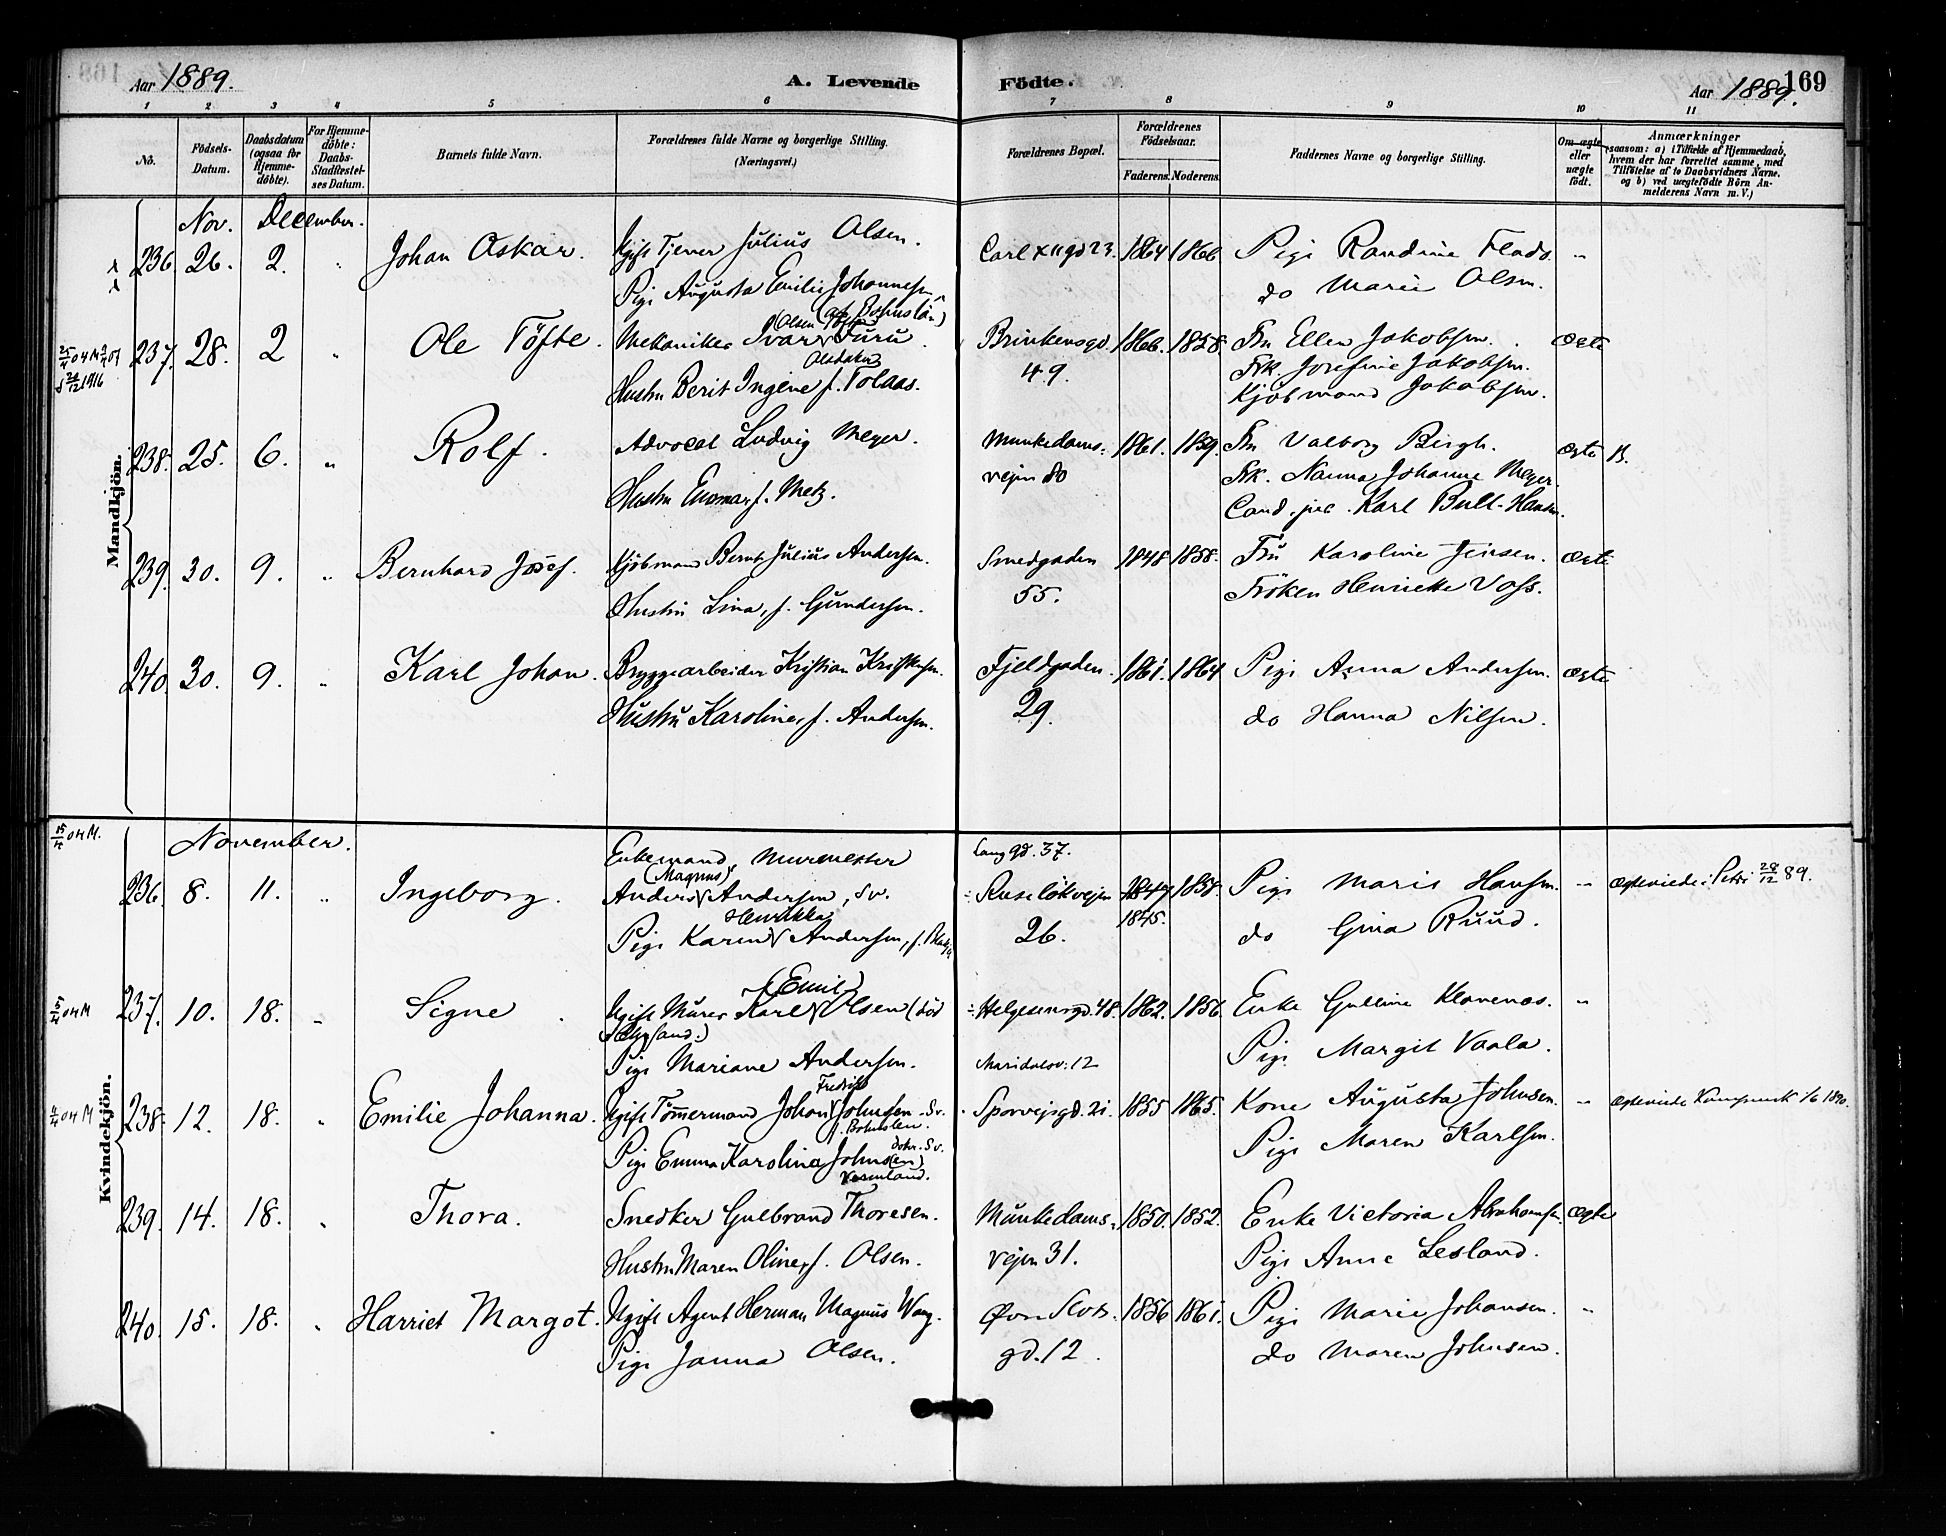 Aar 1889.
A. Levende
Födte.
Aar 1889.
169
1 2 3 4 5 6 7 8 9 10 11
No.
Födsels-Datum.
Daabsdatum (ogsaa for Hjemme-döbte).
For Hjemme-döbte: Daabs-Stadfæstel-ses Datum.
Barnets fulde Navn.
Forældrenes fulde Navne og borgerlige Stilling.
(Næringsvei.)
Forældrenes Bopæl.
Forældrenes Födselsaar.
Faderens. Moderens.
Faddernes Navne og borgerlige Stilling.
Om ægte eller uægte födt.
Anmærkninger
saasom: a) i Tilfælde af Hjemmedaab,
hvem der har forrettet samme, med
Tilföielse af to Daabsvidners Navne,
og b) ved uægtefödte Börn An-
melderens Navn m. V.)
Mandkjön.
Nov. December.
236 26. 2. " Johan Oskar. Ugift Tjener Julius Olsen. Carl XII gd 23. 1864 1866 Pige Randine Flado. "
Pige Augusta Emilie Johannesen do Marie Olsen.
(af Bohuslän)
237. 28. 2 " Ole Töfte. Mekaniker Ivar (Olsen Töfte) Furu. Brinkensgd. 1866. 1858. Fru Ellen Jakobsen. Ægte
Hustru Berit Ingene f. Olsdatter Tolaas. 49. Frk. Josefine Jakobsen.
Kjöbmand Jakobsen.
238. 25. 6. " Rolf. Advocat Ludvig Meyer. Munkedams- 1861. 1859. Fru Valborg Bergh. Ægte B.
Hustru Emma, f. Metz. vejen 80 Frk. Nanna Johanne Meyer.
Cand. jur. Karl Bull-Hansen.
239. 30. 9. " Bernhard Josef. Kjöbmand Bernt Julius Andersen. Smedgaden 1848 1858. Fru Karoline Jensen. Ægte
Hustru Lina, f. Gundersen. 55. Fröken Henriette Voss.
240 30. 9. " Karl Johan. Bryggearbeider Kristian Kristensen. Fjeldgaden. 1861. 1864 Pige Anna Andersen. Ægte
Hustru Karoline, f. Andersen. 29. do Hanna Nilsen.
Kvindekjön.
15/4 04 M.
November.
Enkemand, Murmester Langgd. 37.
236. 8. 11. " Ingeborg. Anders (Magnus) Andersen, Sv. Ruselökvejen 1847 1858. Pige Maris Hansen. " Ægteviede i Petri 28/12 89.
Pige Karen Henrikka Andersen, 26. 1845. do Gina Ruud.
5/4 04 M 237. 10. 18. " Signe. Ugift Murer Karl (Emil) Olsen (död Helgesensgd. 48. 1862. 1856. Enke Gulline Klavenæs. "
Pige Mariane Andersen. Maridalsv. 12 Pige Margit Vaala.
04 M 238. 12. 18. " Emilie Johanna. Ugift Tömmermand Johan Fredrik Johnsen. Sv. Sporvejsgd. 21. 1855 1865. Kone Augusta Johnsen. " Ægteviede
f. Bohuslen.
Pige Emma Karolina Johnsen Pige Maren Karlsen.
239. 14. 18. " Thora. Snedker Gulbrand Thoresen. Munkedams- 1850. 1852. Enke Victoria Abrahamsen. Ægte
Hustru Maren Oline, f. Olsen. vejen 31. Pige Anne Lesland.
240. 15. 18. " Harriet Margot. Ugift Agent Herman Magnus Wang. Övre Slots- 1856 1861. Pige Marie Johansen. "
Pige Janna Olsen. gd. 12. do Maren Johnsen.